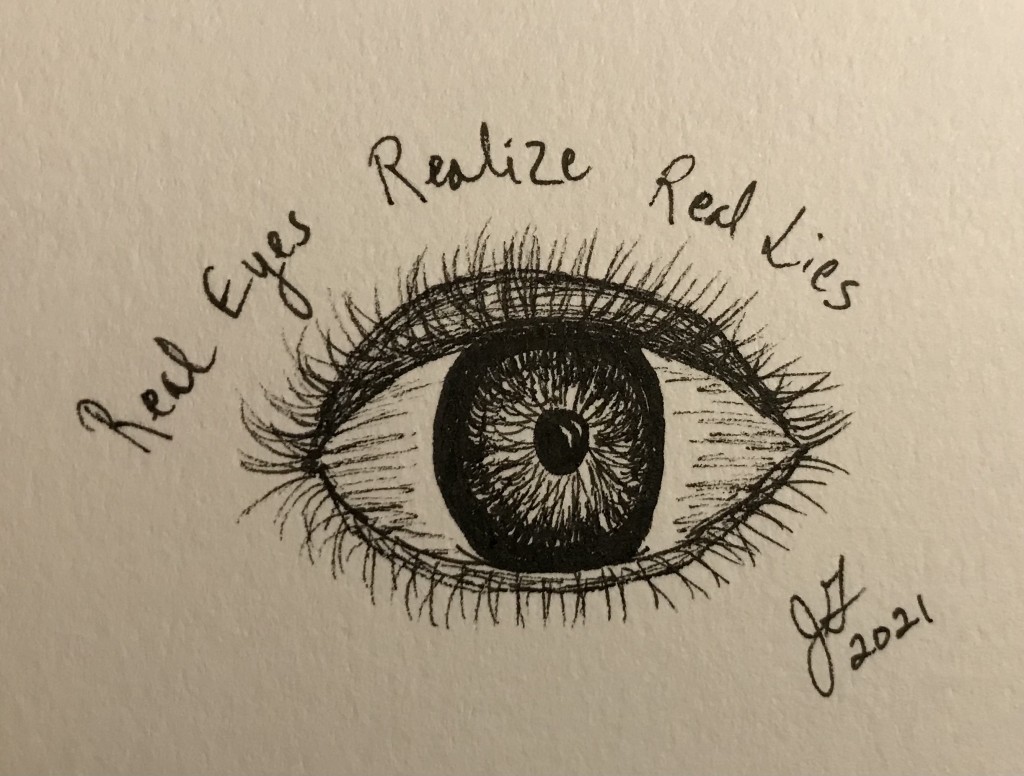 Real Eyes Realize Real Lies
JG
2021